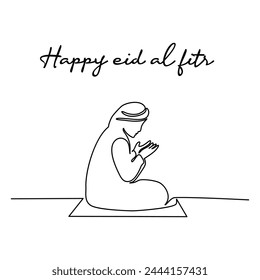 Happy eid al fitr
shutterstock.com · 2444157431